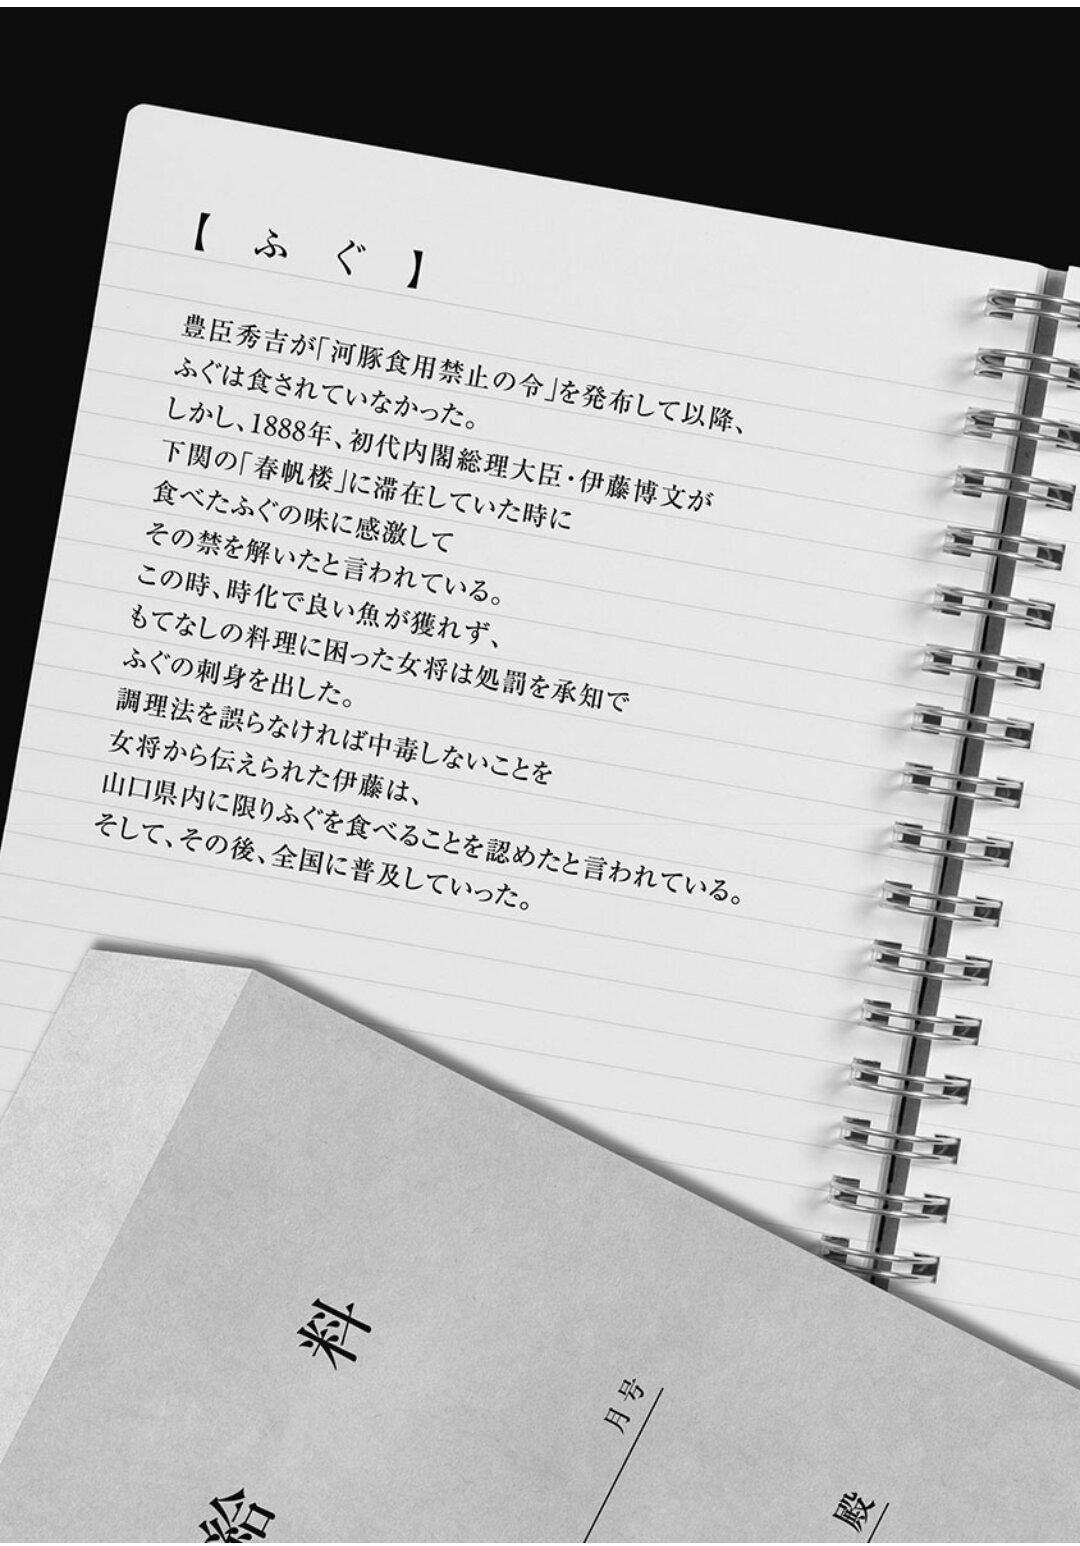 【ふぐ】
豊臣秀吉が「河豚食用禁止の令」を発布して以降、
ふぐは食されていなかった。
しかし、1888年、初代内閣総理大臣・伊藤博文が
下関の「春帆楼」に滞在していた時に
食べたふぐの味に感激して
その禁を解いたと言われている。
この時、時化で良い魚が獲れず、
もてなしの料理に困った女将は処罰を承知で
ふぐの刺身を出した。
調理法を誤らなければ中毒しないことを
女将から伝えられた伊藤は、
山口県内に限りふぐを食べることを認めたと言われている。
そして、その後、全国に普及していった。
給料
月号
殿